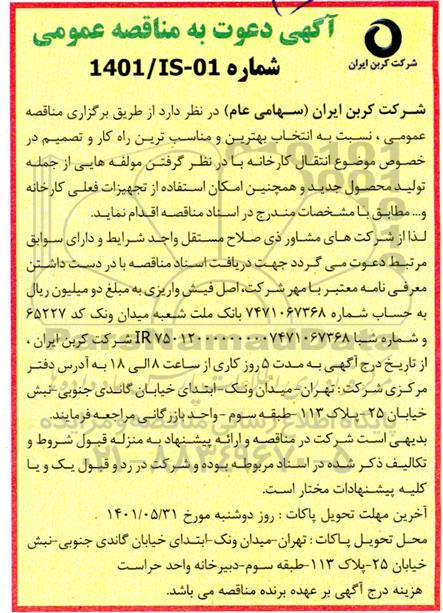 آگهی دعوت به مناقصه عمومی
شماره 1401/IS-01
شرکت کربن ایران
شرکت کربن ایران (سهامی عام) در نظر دارد از طریق برگزاری مناقصه
عمومی ، نسبت به انتخاب بهترین و مناسب ترین راه کار و تصمیم در
خصوص موضوع انتقال کارخانه با در نظر گرفتن مولفه هایی از جمله
تولید محصول جدید و همچنین امکان استفاده از تجهیزات فعلی کارخانه
و... مطابق با مشخصات مندرج در اسناد مناقصه اقدام نماید.
لذا از شرکت های مشاور ذی صلاح مستقل واجد شرایط و دارای سوابق
مرتبط دعوت می گردد جهت دریافت اسناد مناقصه با در دست داشتن
معرفی نامه معتبر با مهر شرکت، اصل فیش واریزی به مبلغ دو میلیون ریال
به حساب شماره ۷۴۷۱۰۶۷۳۶۸ بانک ملت شعبه میدان ونک کد ۶۵۲۲۷
و شماره شبا IR ۷۵۰۱۲۰۰۰۰۰۰۰۰۰۷۴۷۱۰۶۷۳۶۸ شرکت کربن ایران ،
از تاریخ درج آگهی به مدت ۵ روز کاری از ساعت ۸ الی ۱۸ به آدرس دفتر
مرکزی شرکت: تهران-میدان ونک-ابتدای خیابان گاندی جنوبی-نبش
خیابان ۲۵-پلاک ۱۱۳-طبقه سوم - واحد بازرگانی مراجعه فرمایند.
بدیهی است شرکت در مناقصه و ارائه پیشنهاد به منزله قبول شروط و
تکالیف ذکر شده در اسناد مربوطه بوده و شرکت در رد و قبول یک و یا
کلیه پیشنهادات مختار است.
آخرین مهلت تحویل پاکات : روز دوشنبه مورخ ۱۴۰۱/۰۵/۳۱
محل تحویل پاکات : تهران-میدان ونک-ابتدای خیابان گاندی جنوبی-نبش
خیابان ۲۵-پلاک ۱۱۳-طبقه سوم-دبیرخانه واحد حراست
هزینه درج آگهی بر عهده برنده مناقصه می باشد.